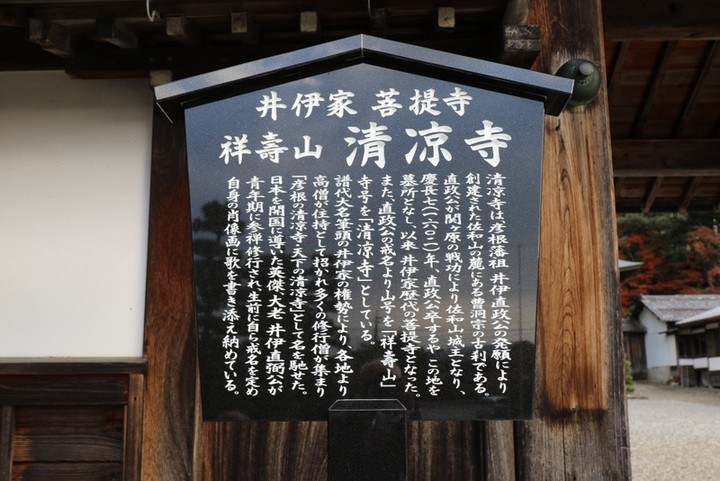 井伊家 菩提寺
祥壽山 清凉寺
清凉寺は、彦根藩祖 井伊直政公の発願により
創建された佐和山の麓にある曹洞宗の古刹である。
直政公が関ヶ原の戦功により佐和山城主となり、
慶長七(一六〇二)年、直政公卒するや、この地を
墓所となし、以来 井伊家歴代の菩提寺となった。
また、直政公の戒名より山号を「祥壽山」
寺号を「清凉寺」としている。
譜代大名筆頭の井伊家の権勢により、各地より
高僧が住持として招かれ多くの修行僧が集まり
「彦根の清凉寺・天下の清凉寺」として名を馳せた。
日本を開国に導いた英傑、大老 井伊直弼公が
青年期に参禅修行され、生前に自ら戒名を定め
自身の肖像画に歌を書き添え納めている。